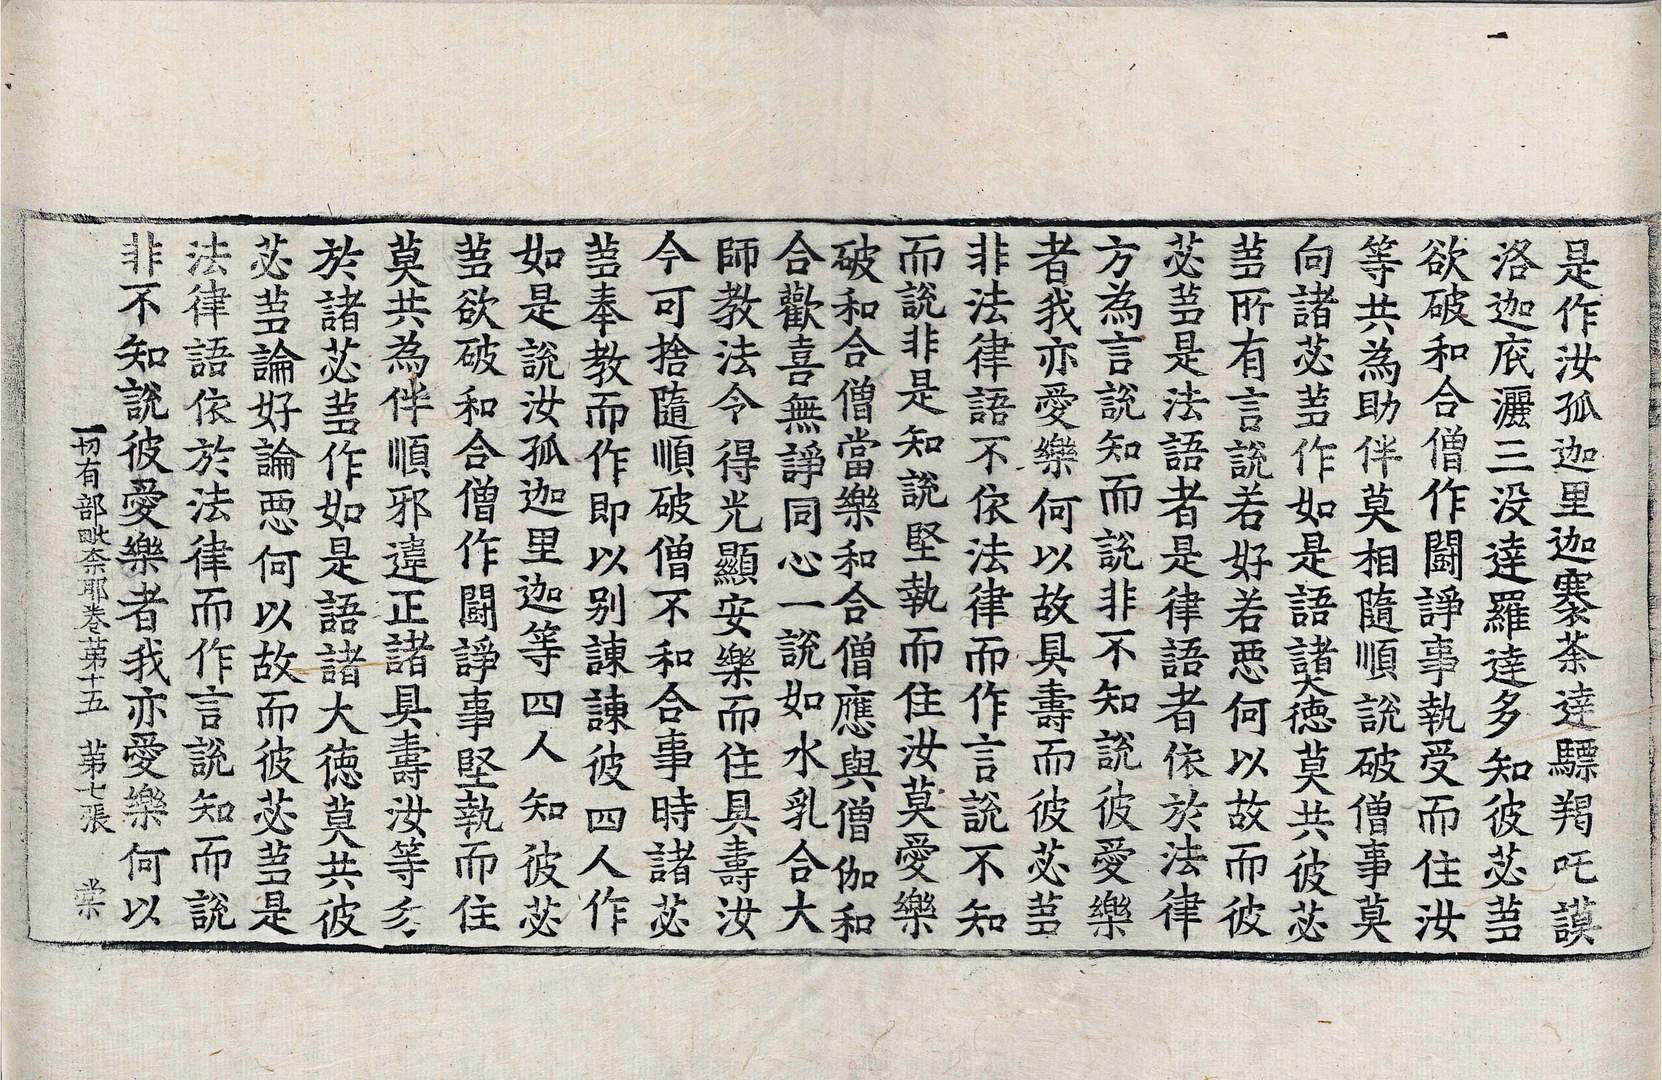 是作汝孤迦里迦褰荼達驃羯吒謨
洛迦底灑三没達羅達多知彼苾蒭
欲破和合僧作鬪諍事執受而住汝
等共為助伴莫相隨順說破僧事莫
向諸苾蒭作如是語諸大德莫共彼苾
蒭所有言說若好若惡何以故而彼
苾蒭是法語者是律語者依於法律
方為言說知而說非不知說彼愛樂
者我亦愛樂何以故具壽而彼苾蒭
非法律語不依法律而作言說不知
而說非是知說堅執而住汝莫愛樂
破和合僧當樂和合僧應與僧伽和
合歡喜無諍同心一說如水乳合大
師教法令得光顯安樂而住具壽汝
今可捨隨順破僧不和合事時諸苾
蒭奉教而作即以别諫諫彼四人作
如是說汝孤迦里迦等四人知彼苾
蒭欲破和合僧作鬪諍事堅執而住
莫共為伴順邪違正諸具壽汝等亦
於諸苾蒭作如是語諸大德莫共彼
苾蒭論好論惡何以故而彼苾蒭是
法律語依於法律而作言說知而說
非不知說彼愛樂者我亦愛樂何以
一切有部毗奈耶卷第十五 第七張 棠